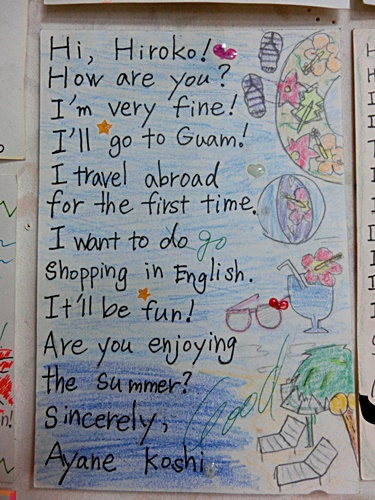 Hi, Hiroko!
How are you?
I'm very fine!
I'll go to Guam!
I travel abroad
for the first time.
I want to do go
shopping in English.
It'll be fun!
Are you enjoying
the summer?
Sincerely,
Good
Ayane Koshi